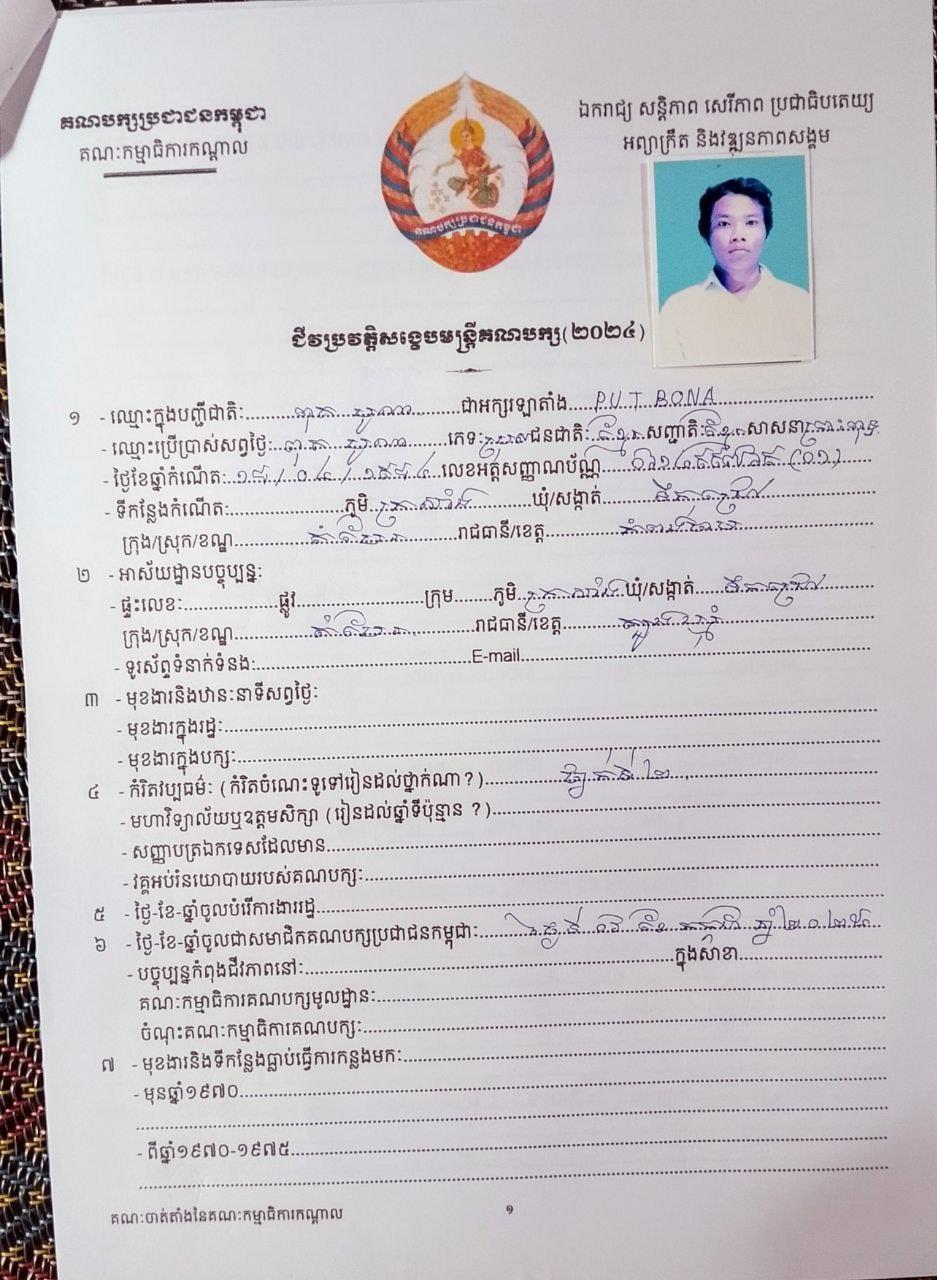 គណបក្សប្រជាជនកម្ពុជា
គណៈកម្មាធិការកណ្តាល
ឯករាជ្យ សន្តិភាព សេរីភាព ប្រជាធិបតេយ្យ
អព្យាក្រឹត និងវឌ្ឍនភាពសង្គម
គណបក្សប្រជាជនកម្ពុជា
ជីវប្រវត្តិសង្ខេបមន្ត្រីគណបក្ស(២០២៤)
១ - ឈ្មោះក្នុងបញ្ជីជាតិៈ ពុត បូណា ជាអក្សរឡាតាំង PUT BONA
- ឈ្មោះប្រើប្រាស់សព្វថ្ងៃៈ ពុត បូណា ភេទៈ ប្រុស ជនជាតិៈ ខ្មែរ សញ្ជាតិៈ ខ្មែរ សាសនា ព្រះពុទ្ធ
- ថ្ងៃខែឆ្នាំកំណើតៈ លេខអត្តសញ្ញាណប័ណ្ណ
- ទីកន្លែងកំណើតៈ ភូមិ ឃុំ/សង្កាត់
ក្រុង/ស្រុក/ខណ្ឌ រាជធានី/ខេត្ត
២ - អាស័យដ្ឋានបច្ចុប្បន្នៈ
- ផ្ទះលេខៈ ផ្លូវ ក្រុម ភូមិ ឃុំ/សង្កាត់
ក្រុង/ស្រុក/ខណ្ឌ រាជធានី/ខេត្ត ត្បូងឃ្មុំ
- ទូរស័ព្ទទំនាក់ទំនងៈ E-mail
៣ - មុខងារនិងឋានៈនាទីសព្វថ្ងៃៈ
- មុខងារក្នុងរដ្ឋៈ
- មុខងារក្នុងបក្សៈ
៤ - កំរិតវប្បធម៌ៈ (កំរិតចំណេះទូទៅរៀនដល់ថ្នាក់ណា?) ថ្នាក់ទី ២
- មហាវិទ្យាល័យឬឧត្តមសិក្សា (រៀនដល់ឆ្នាំទីប៉ុន្មាន ?)
- សញ្ញាបត្រឯកទេសដែលមាន
- វគ្គអប់រំនយោបាយរបស់គណបក្សៈ
៥ - ថ្ងៃ-ខែ-ឆ្នាំចូលបំរើការងាររដ្ឋ
៦ - ថ្ងៃ-ខែ-ឆ្នាំចូលជាសមាជិកគណបក្សប្រជាជនកម្ពុជាៈ
- បច្ចុប្បន្នកំពុងជីវភាពនៅៈ ក្នុងសាខា
គណៈកម្មាធិការគណបក្សមូលដ្ឋានៈ
ចំណុះគណៈកម្មាធិការគណបក្សៈ
៧ - មុខងារនិងទីកន្លែងធ្លាប់ធ្វើការកន្លងមកៈ
- មុនឆ្នាំ១៩៧០
- ពីឆ្នាំ១៩៧០-១៩៧៥
គណៈចាត់តាំងនៃគណៈកម្មាធិការកណ្តាល
១